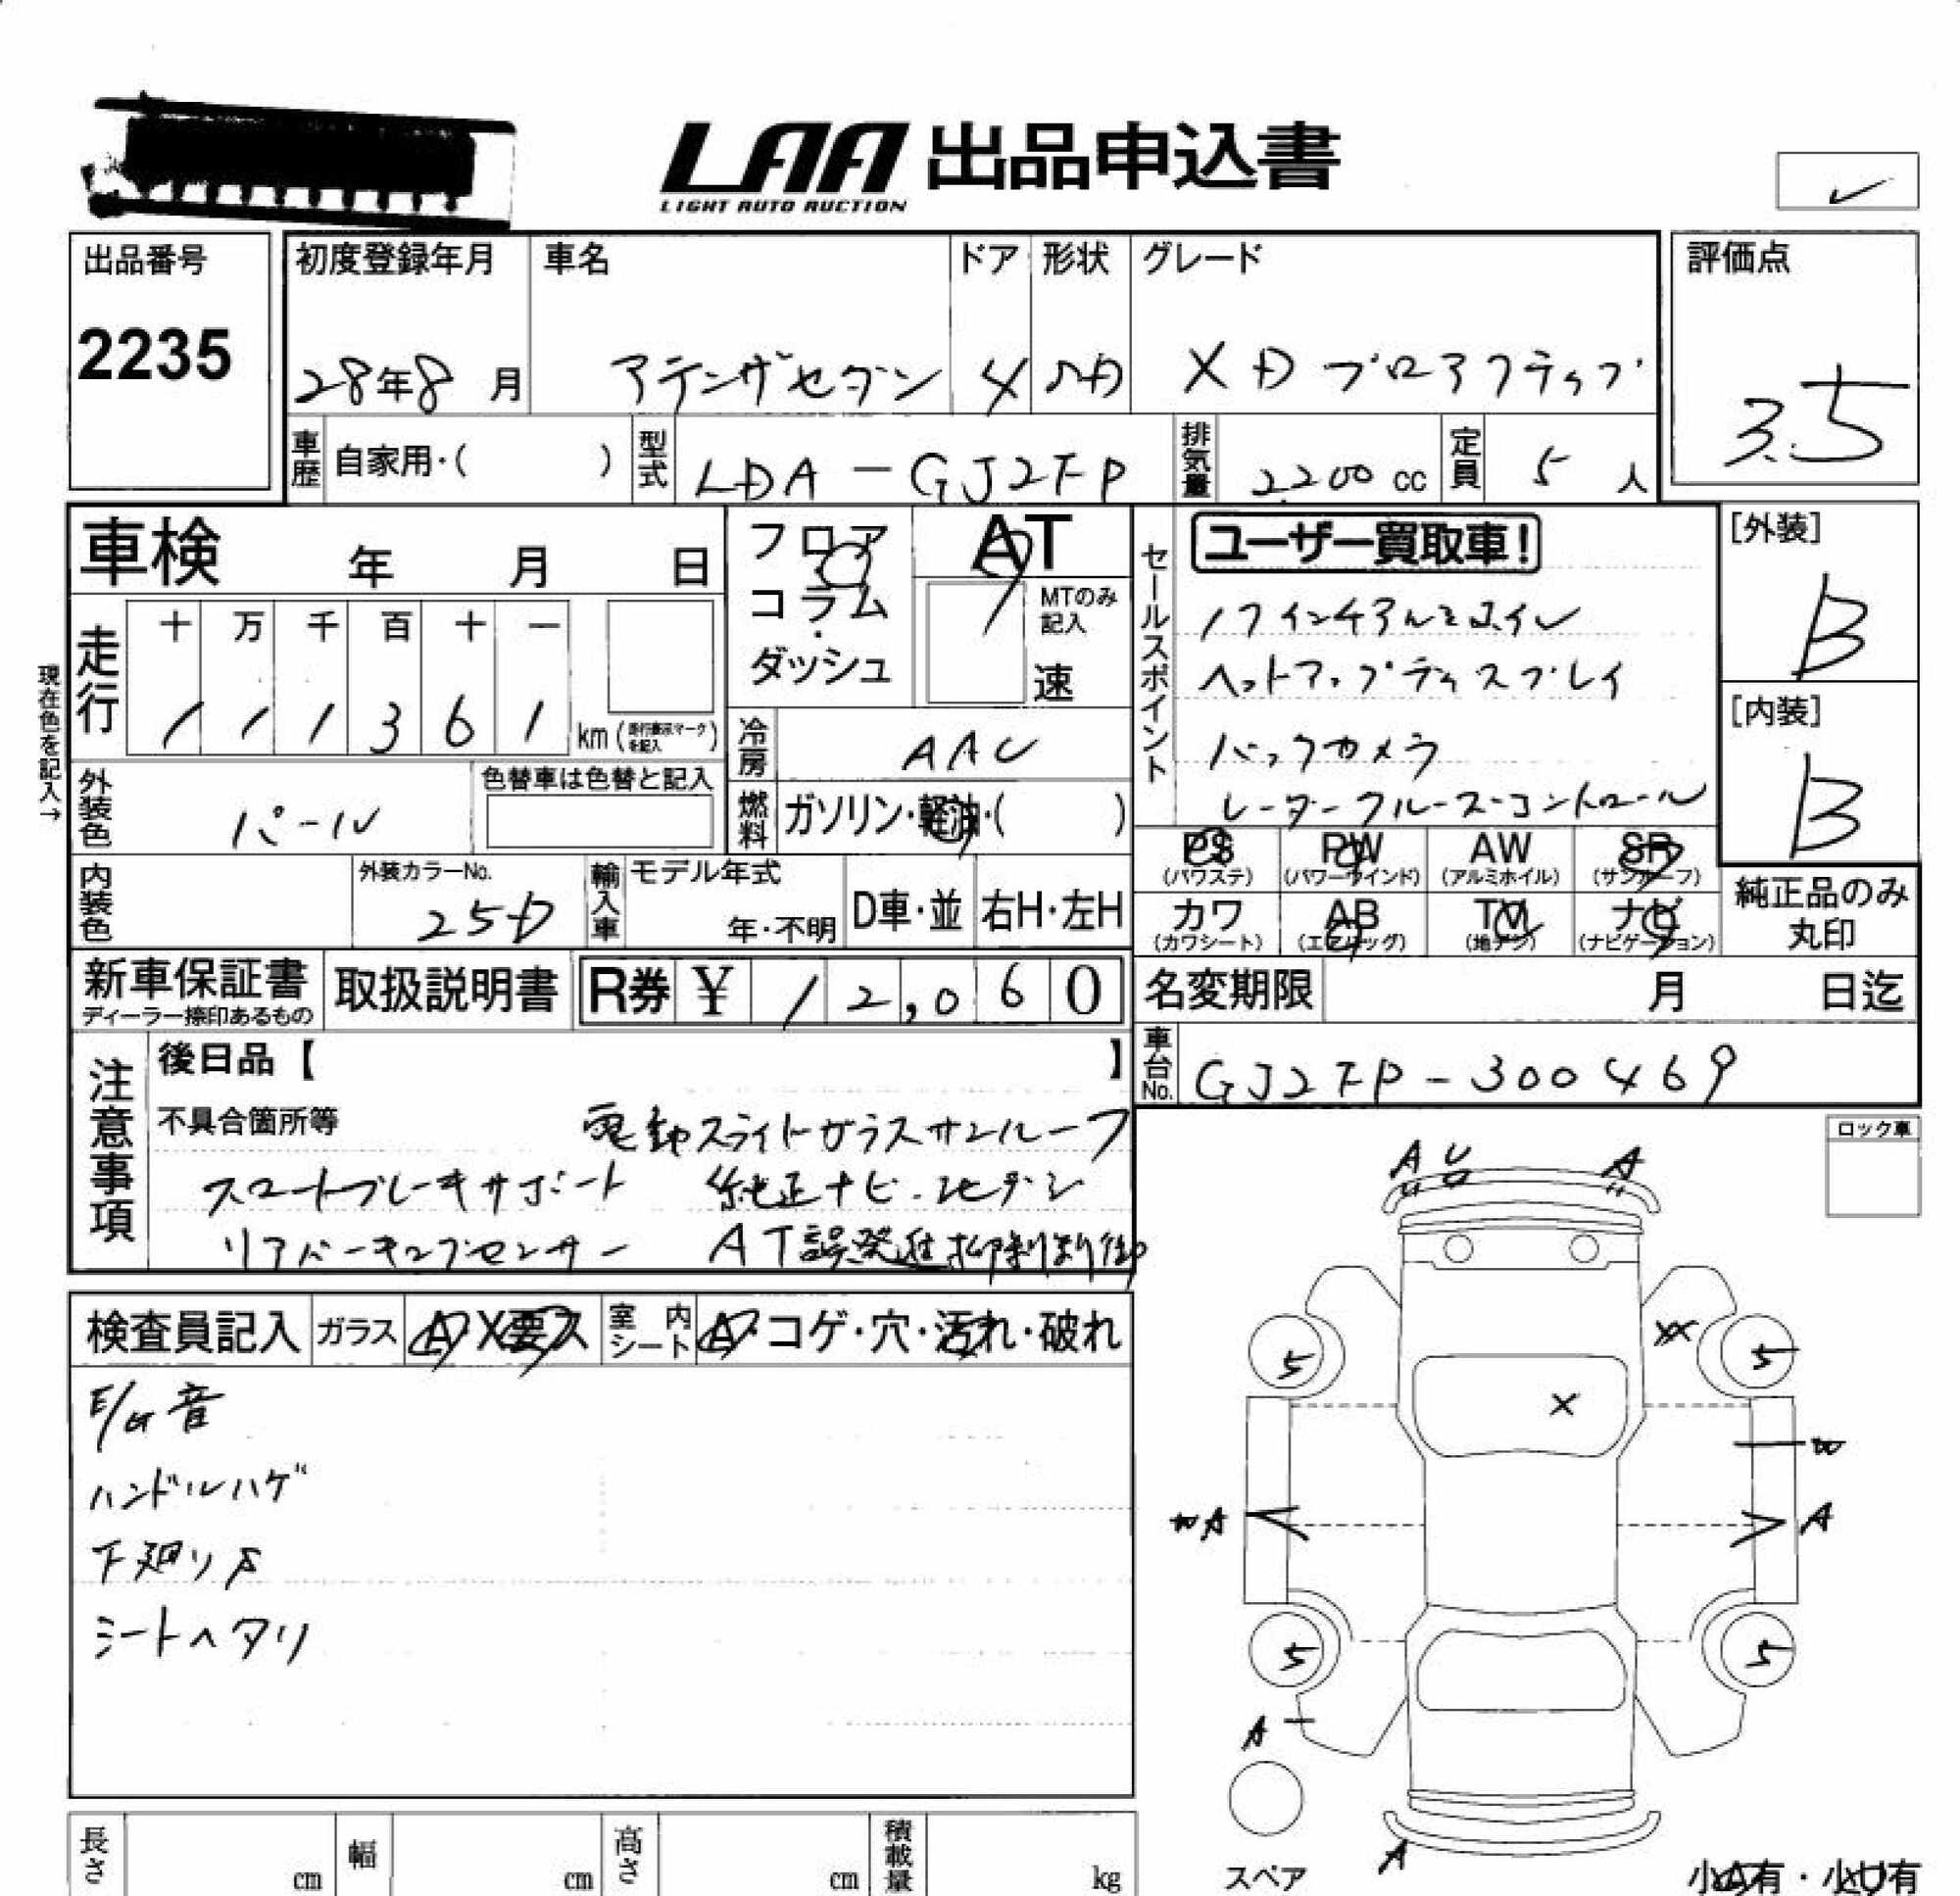 LAA 出品申込書
LIGHT AUTO AUCTION
✓
出品番号
2235
初度登録年月
28年8月
車名
アテンザセダン
ドア
4
形状
SD
グレード
XD プロアクティブ
評価点
3.5
車歴
自家用・( )
型式
LDA-GJ2FP
排気量
2200 cc
定員
5 人
車検 年 月 日
フロア
コラム
・
ダッシュ
AT
MTのみ記入
速
セールスポイント
ユーザー買取車!
19インチアルミホイル
ヘットアップディスプレイ
バックカメラ
レーダークルーズ・コントロール
[外装]
B
[内装]
B
現在色を記入→
走行
十 万 千 百 十 一
1 1 1 3 6 1 km (走行表示マークを記入)
冷房
AAC
燃料
ガソリン・軽油・( )
外装色
パール
色替車は色替と記入
内装色
外装カラーNo.
25D
輸入車
モデル年式
年・不明
D車・並
右H・左H
PS
(パワステ)
PW
(パワーウインド)
AW
(アルミホイル)
SR
(サンルーフ)
カワ
(カワシート)
AB
(エアバッグ)
TV
(地デジ)
ナビ
(ナビゲーション)
純正品のみ
丸印
新車保証書
ディーラー捺印あるもの
取扱説明書
R券 ¥ 12,060
名変期限 月 日迄
車台No.
GJ2FP-300469
注意事項
後日品【 】
不具合箇所等
電動スライドガラスサンルーフ
スマートブレーキサポート 純正ナビ・地デジ
リアパーキングセンサー AT誤発進抑制制御
ロック車
検査員記入
ガラス
A・X要ス
室内シート
A・コゲ・穴・汚れ・破れ
E/G音
ハンドルハゲ
下廻りS
シートヘタリ
A U A
XX
5 5
X
W
WA A
5 5
A
A
スペア
小A有・小U有
長さ cm
幅 cm
高さ cm
積載量 kg